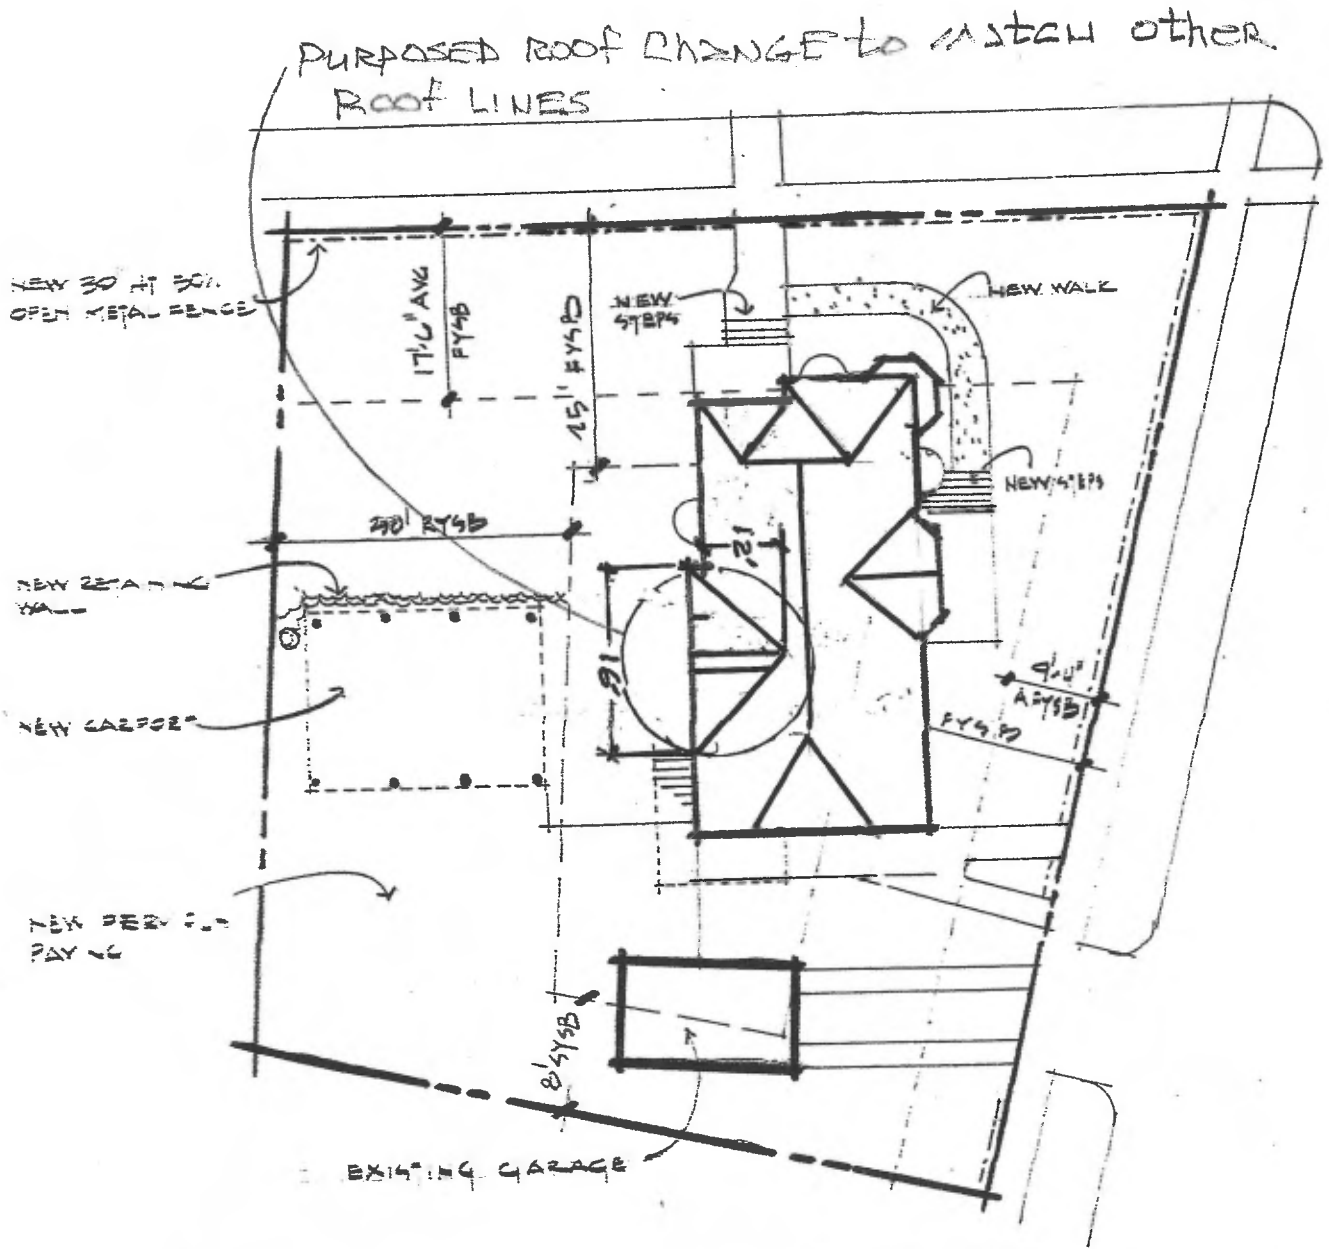 PURPOSED ROOF CHANGE to MATCH other
ROOF LINES
NEW 30" AT 50%
OPEN METAL FENCE
17'-6" AVG
FYSB
25' FYSB
NEW
STEPS
NEW WALK
NEW STEPS
20' RYSB
12'
NEW RETAINING
WALL
16'
9'-4"
A FYSB
FYSB
NEW CARPORT
NEW
PAVING
8' SYSB
EXISTING GARAGE